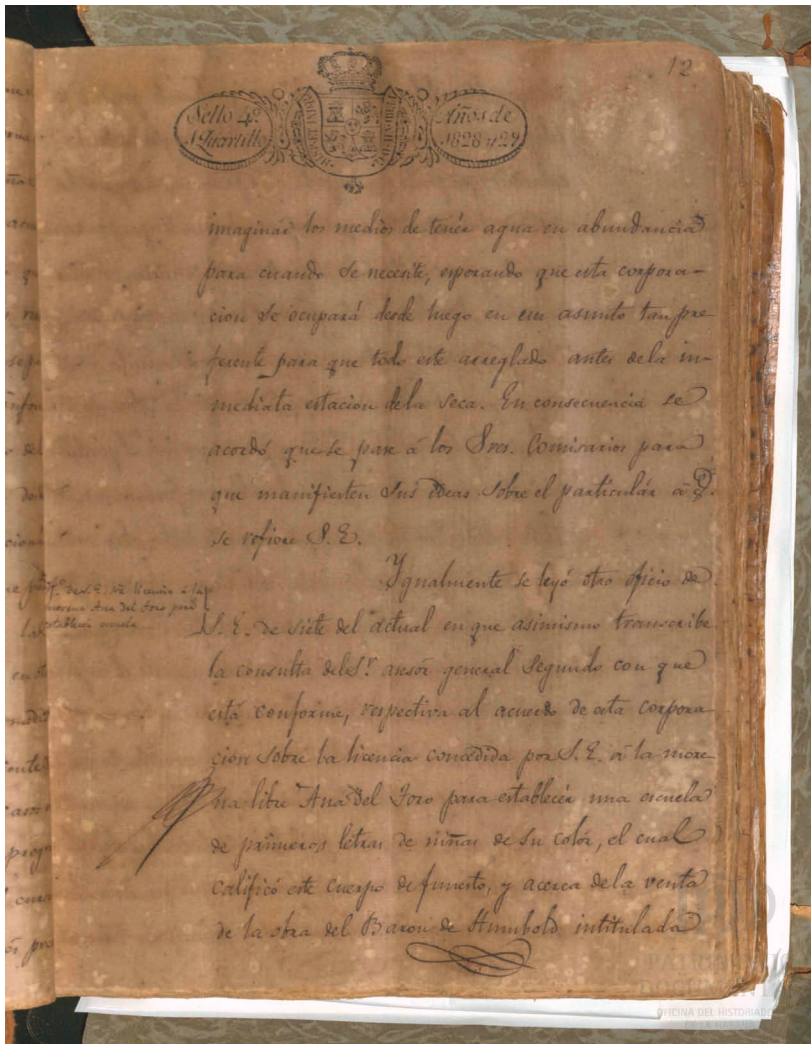 12
Sello 4º
1 Quartillo
Años de
1828 y 29
imaginar los medios de tenér agua en abundancia
para cuando se necesite, esperando que esta corpora-
cion se ocupará desde luego en un asunto tan pre
ferente para que todo este arreglado antes dela in-
mediata estacion dela seca. En consecuencia se
acordó que se pase á los Sres. Comisarios para
que manifiesten sus ideas sobre el particulár á q.
se refiere S. E.
Ygualmente se leyó otro oficio de
S. E. de siete del actual en que asimismo transcribe
la consulta del Sr. asesór general segundo con que
está conforme, respectiva al acuerdo de esta corpora
cion sobre la licencia concedida por S. E. á la more
na libre Ana del Toro para establecér una escuela
de primeras letras de niñas de su color, el cual
calificó este cuerpo de funesto, y acerca dela venta
de la obra del Baron de Humbold intitulada
licencia á la
morena Ana del Toro para
establecer escuela
PATRIMONIO
DOCUMENTAL
OFICINA DEL HISTORIADOR
DE LA HABANA